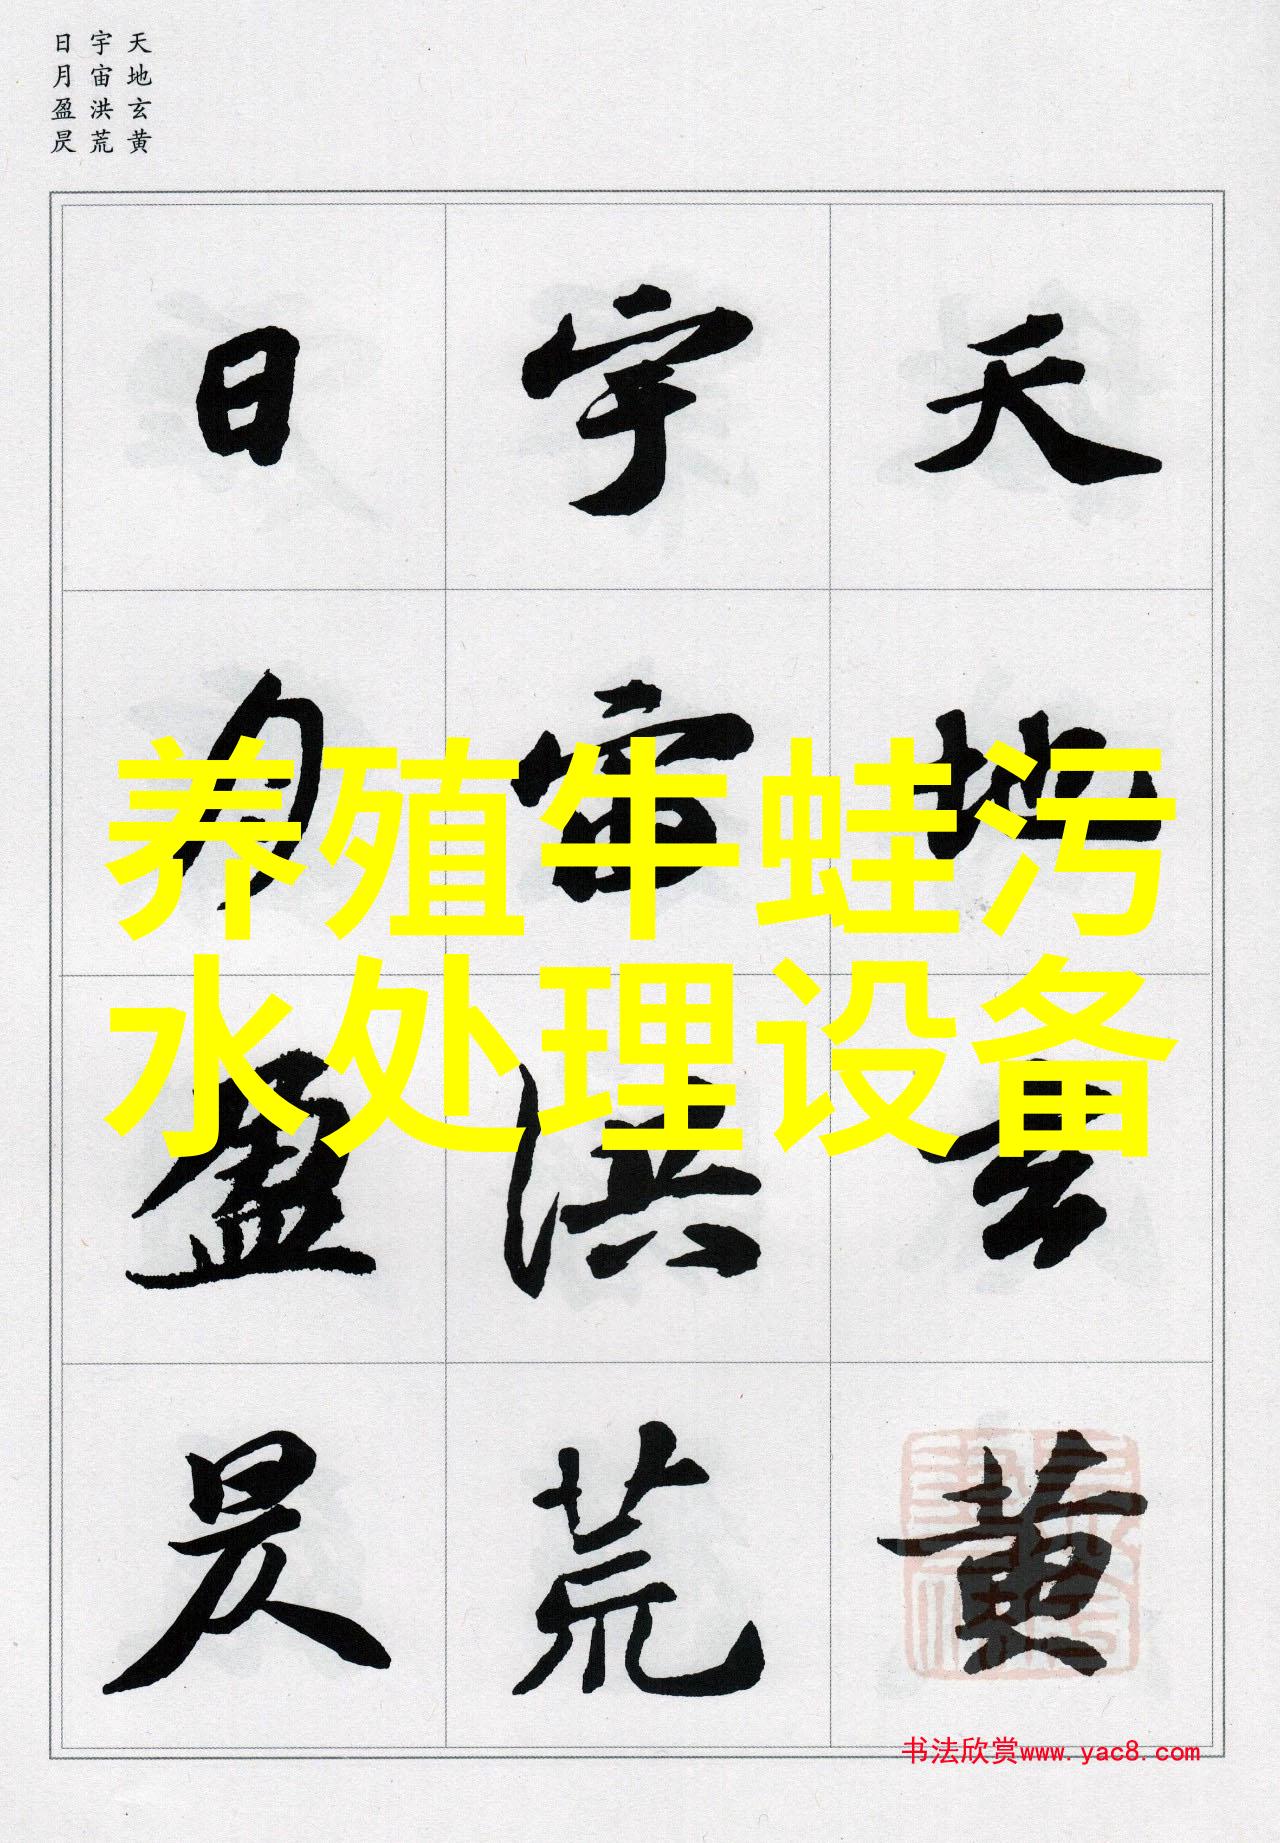 天地玄黄
宇宙洪荒
日月盈昃
天地玄黄
宇宙洪荒
日月盈昃
养殖牛蛙污
水处理设备
书法欣赏www.yac8.com